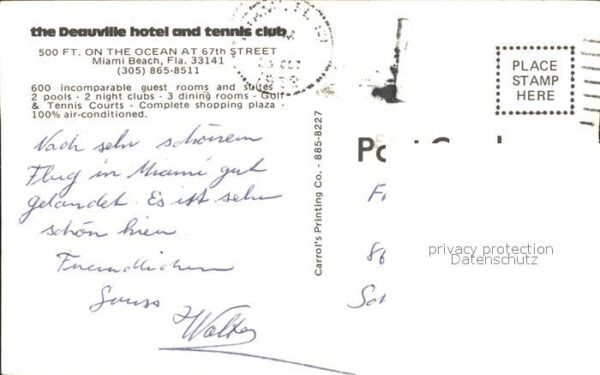 the Deauville hotel and tennis club
500 FT. ON THE OCEAN AT 67th STREET
Miami Beach, Fla. 33141
(305) 865-8511
600 incomparable guest rooms and suites
2 pools - 2 night clubs - 3 dining rooms - Golf
& Tennis Courts - Complete shopping plaza -
100% air-conditioned.
Nach sehr schönem
Flug in Miami gut
gelandet. Es ist sehr
schön hier.
Freundlichen
Gruss
Walter
Carrol's Printing Co. - 885-8227
PLACE
STAMP
HERE
Po
privacy protection
Datenschutz